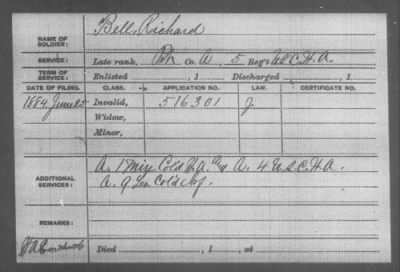 NAME OF SOLDIER: Bell, Richard
SERVICE: Late rank, Co. A, 5 Reg't U.S.C.H.A.
TERM OF SERVICE: Enlisted , 1 Discharged , 1
DATE OF FILING. CLASS. APPLICATION NO. LAW. CERTIFICATE NO.
1884, June 25 Invalid, 516301 J.
Widow,
Minor,
ADDITIONAL SERVICES: A. 1 Miss Cold H.A. and A. 4 U.S.C.H.A.
A. 9 La. Cold Inf.
REMARKS:
Died , 1 , at